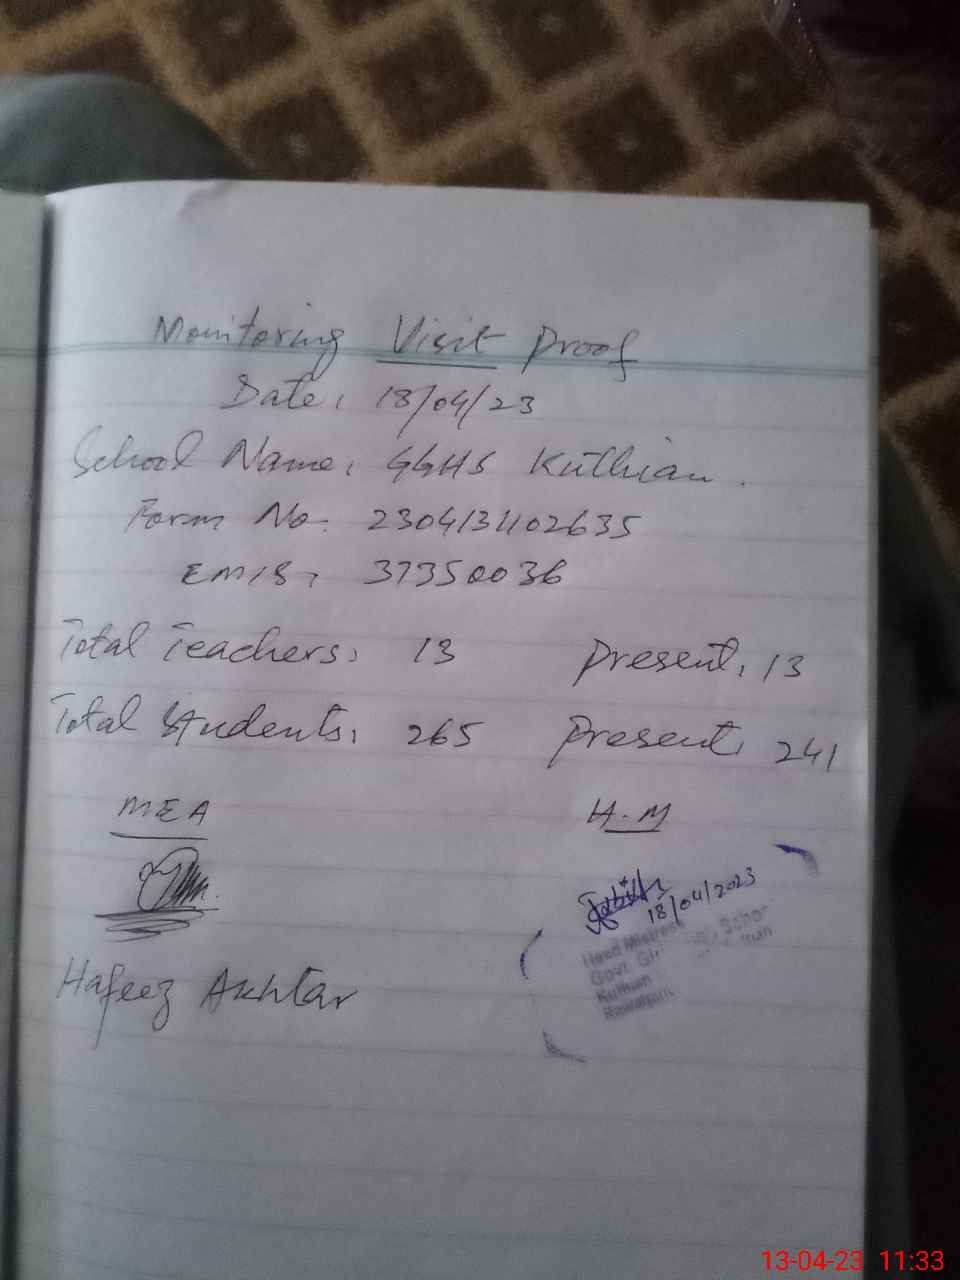 Monitoring Visit Proof
Date: 18/04/23
School Name: GGHS Kuthian.
Form No. 230413402635
EMIS: 37350036
Total Teachers: 13 Present: 13
Total Students: 265 Present: 241
MEA H.M
18/04/2023
Head Mistress
Govt. School
Kuthian
Rawalpindi
Hafeez Akhtar
13-04-23 11:33